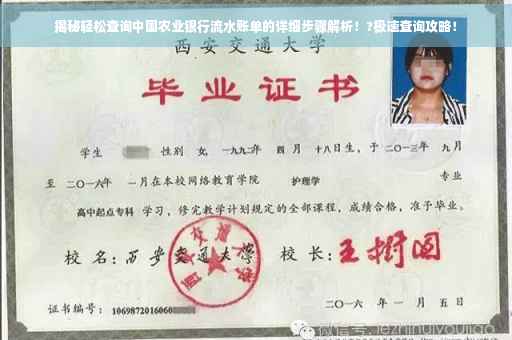 揭秘轻松查询中国农业银行流水账单的详细步骤解析！?极速查询攻略！
西安交通大学
毕业证书
学生 性别 女，一九九二年 四月 十八日生，于二〇一三年 九月
至 二〇一六年 一月在本校网络教育学院 护理学 专业
高中起点专科 学习，修完教学计划规定的全部课程，成绩合格，准予毕业。
校名：西安交通大学 校长：王树国
证书编号：1069872016060
二〇一六年 一月 五日
微信号: jiezhinuiyoujiao